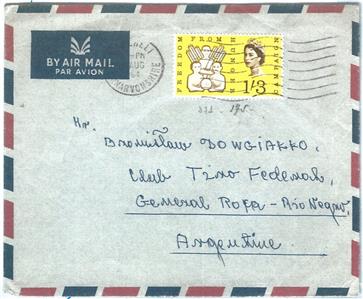 BY AIR MAIL
PAR AVION
-PM
AUG
CAERNARVONSHIRE
FREEDOM FROM HUNGER CAMPAIGN
1/3
Mr.
Bronislaw DOWGIAKKO,
Club Tiro Federal,
General Roca - Rio Negro,
Argentine.